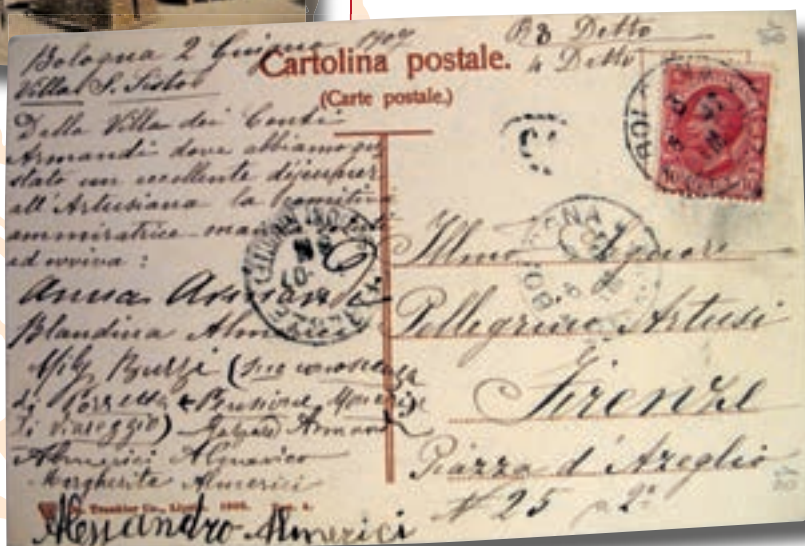 Bologna 2 Giugno 1907
Villa S. Sisto
Cartolina postale.
(Carte postale.)
B 8 Detto
4 Detto
Dalla Villa dei Conti
Armandi dove abbiamo gu
stato un eccellente déjeuner
all'Artusiana la comitiva
ammiratrice manda saluti
ed evviva:
Anna Armandi
Blandina Almerici
(sua conoscenza
di Porretta e Pensione
di Viareggio) Armandi
Almerici Almerico
Margherita Almerici
Alessandro Almerici
Illmo Signore
Pellegrino Artusi
Firenze
Piazza d'Azeglio
N 25 p 2º